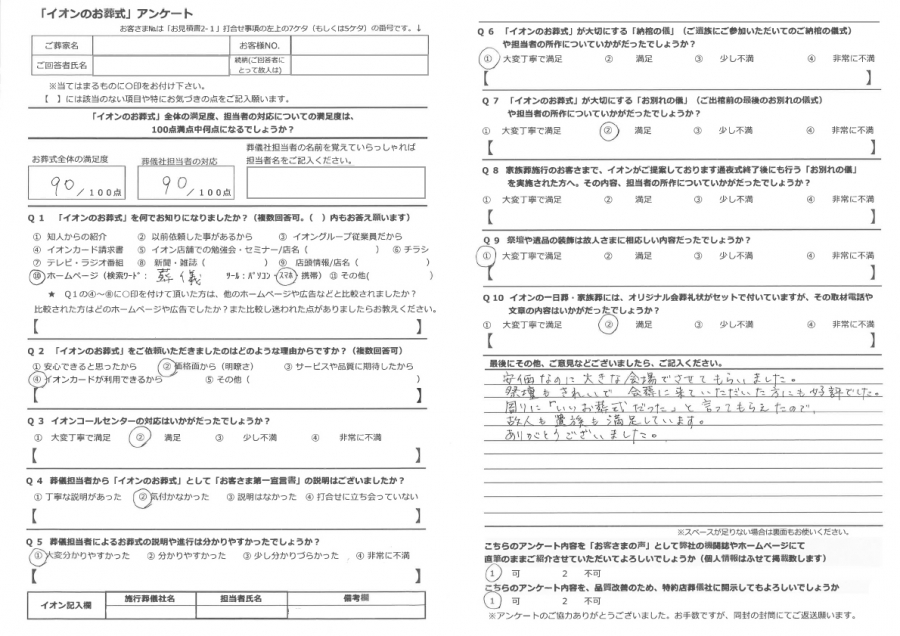 「イオンのお葬式」アンケート
お客さま№は「お見積書2-1」打合せ事項の左上の7ケタ（もしくは5ケタ）の番号です。↓
ご葬家名 お客様NO.
ご回答者氏名 続柄(ご回答者にとって故人は)
※当てはまるものに○印をお付け下さい。
【　】には該当のない項目や特にお気づきの点をご記入願います。
「イオンのお葬式」全体の満足度、担当者の対応についての満足度は、
100点満点中何点になるでしょうか？
お葬式全体の満足度 葬儀社担当者の対応 葬儀社担当者の名前を覚えていらっしゃれば
担当者名をご記入ください。
90/100点 90/100点
Q 1 「イオンのお葬式」を何でお知りになりましたか？（複数回答可。（　）内もお答え願います）
① 知人からの紹介 ② 以前依頼した事があるから ③ イオングループ従業員だから
④ イオンカード請求書 ⑤ イオン店舗での勉強会・セミナー/店名（　） ⑥ チラシ
⑦ テレビ・ラジオ番組 ⑧ 新聞・雑誌（　） ⑨ 店頭情報/店名（　）
⑩ ホームページ（検索ﾜｰﾄﾞ： 葬儀 ﾂｰﾙ：ﾊﾟｿｺﾝ・ｽﾏﾎ・携帯）⑪ その他(　)
★ Q1の④～⑧に○印を付けて頂いた方は、他のホームページや広告などと比較されましたか？
比較された方はどのホームページや広告でしたか？また比較し迷われた点がありましたらお教えください。
【　】
Q 2 「イオンのお葬式」をご依頼いただきましたのはどのような理由からですか？（複数回答可）
① 安心できると思ったから ② 価格面から（明瞭さ） ③ サービスや品質に期待したから
④ イオンカードが利用できるから ⑤ その他（　）
【　】
Q 3 イオンコールセンターの対応はいかがだったでしょうか？
① 大変丁寧で満足 ② 満足 ③ 少し不満 ④ 非常に不満
【　】
Q 4 葬儀担当者から「イオンのお葬式」として「お客さま第一宣言書」の説明はございましたか？
① 丁寧な説明があった ② 気付かなかった ③ 説明はなかった ④ 打合せに立ち会っていない
【　】
Q 5 葬儀担当者によるお葬式の説明や進行は分かりやすかったでしょうか？
① 大変分かりやすかった ② 分かりやすかった ③ 少し分かりづらかった ④ 非常に不満
【　】
イオン記入欄 施行葬儀社名 担当者氏名 備考欄
Q 6 「イオンのお葬式」が大切にする「納棺の儀」（ご遺族にご参加いただいてのご納棺の儀式）
や担当者の所作についていかがだったでしょうか？
① 大変丁寧で満足 ② 満足 ③ 少し不満 ④ 非常に不満
【　】
Q 7 「イオンのお葬式」が大切にする「お別れの儀」（ご出棺前の最後のお別れの儀式）
や担当者の所作についていかがだったでしょうか？
① 大変丁寧で満足 ② 満足 ③ 少し不満 ④ 非常に不満
【　】
Q 8 家族葬施行のお客さまで、イオンがご提案しております通夜式終了後にも行う「お別れの儀」
を実施された方へ。その内容、担当者の所作についていかがだったでしょうか？
① 大変丁寧で満足 ② 満足 ③ 少し不満 ④ 非常に不満
【　】
Q 9 祭壇や遺品の装飾は故人さまに相応しい内容だったでしょうか？
① 大変丁寧で満足 ② 満足 ③ 少し不満 ④ 非常に不満
【　】
Q 10 イオンの一日葬・家族葬には、オリジナル会葬礼状がセットで付いていますが、その取材電話や
文章の内容はいかがだったでしょうか？
① 大変丁寧で満足 ② 満足 ③ 少し不満 ④ 非常に不満
【　】
最後にその他、ご意見などございましたら、ご記入ください。
安価なのに大きな会場でさせてもらいました。
祭壇もきれいで 会葬に来ていただいた方にも好評でした。
周りに「いいお葬式だった」と言ってもらえたので、
故人も遺族も満足しています。
ありがとうございました。
※スペースが足りない場合は裏面もお使いください。
こちらのアンケート内容を「お客さまの声」として弊社の機関誌やホームページにて
直筆のままご紹介させていただいてよろしいでしょうか（個人情報はふせて掲載致します）
1 可 2 不可
こちらのアンケート内容を、品質改善のため、特約店葬儀社に開示してもよろしいでしょうか
1 可 2 不可
※アンケートのご協力ありがとうございました。お手数ですが、同封の封筒にてご返送願います。